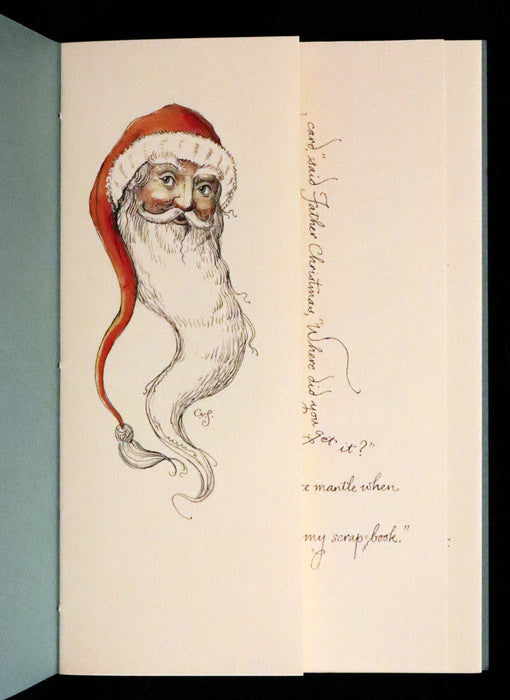 card," said Father Christmas, "Where did you get it?"
mantle when
my scrap-book."